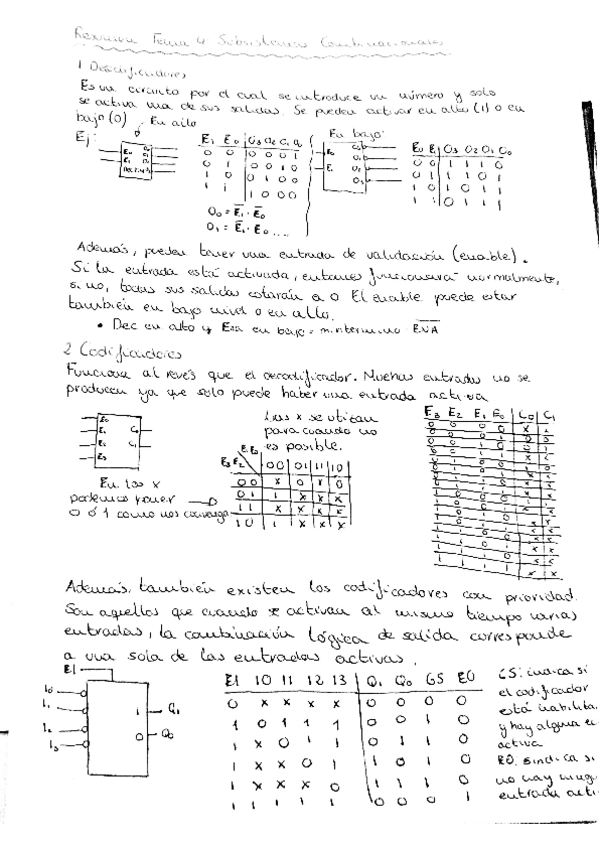 Resumen Tema 4 Subsistemas Combinacionales
1 Decodificadores
Es un circuito por el cual se introduce un número y solo
se activa una de sus salidas. Se pueden activar en alto (1) o en
bajo (0)
Ej: En alto
E1 E0 O3 O2 O1 O0
0 0 0 0 0 1
0 1 0 0 1 0
1 0 0 1 0 0
1 1 1 0 0 0
En bajo:
E0 E1 O3 O2 O1 O0
0 0 1 1 1 0
0 1 1 1 0 1
1 0 1 0 1 1
1 1 0 1 1 1
Además, pueden tener una entrada de validación (enable).
Si la entrada está activada, entonces funcionará normalmente,
si no, todas sus salidas estarán a 0 El enable puede estar
también en bajo nivel o en alto.
• Dec en alto y Ena en bajo = mintermino
2 Codificadores
Funciona al revés que el decodificador. Muchas entradas no se
producen ya que solo puede haber una entrada activa
Las x se utilizan
para cuando no
es posible.
E0
E1
E2
E3
C0
C1
En las x
podemos poner
0 ó 1 como nos convenga
E3 E2
00 01 11 10
00 x 0 x 0
01 1 x x x
11 x x x x
10 1 x x x
E3 E2 E1 E0 C0 C1
Además, también existen los codificadores con prioridad.
Son aquellos que cuando se activan al mismo tiempo varias
entradas, la combinación lógica de salida corresponde
a una sola de las entradas activas.
EI
I0
I1
I2
I3
1 Q1
0 Q0
EI I0 I1 I2 I3 Q1 Q0 GS EO
0 x x x x 0 0 0 0
1 0 1 1 1 0 0 1 0
1 x 0 1 1 0 1 1 0
1 x x 0 1 1 0 1 0
1 x x x 0 1 1 1 0
1 1 1 1 1 0 0 0 1
GS: indica si
el codificador
está habilita
y hay alguna e
activa
EO: indica si
no hay ning
entrada acti